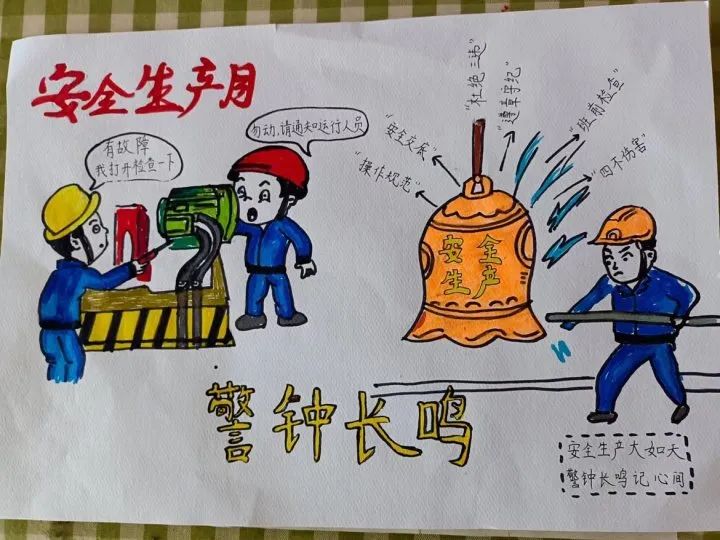 安全生产月
有故障
我打开检查一下
勿动，请通知运行人员
"操作规范"
"安全交底"
"杜绝三违"
"遵章守纪"
"班前检查"
"四不伤害"
安全
生产
警钟长鸣
安全生产大如天
警钟长鸣记心间